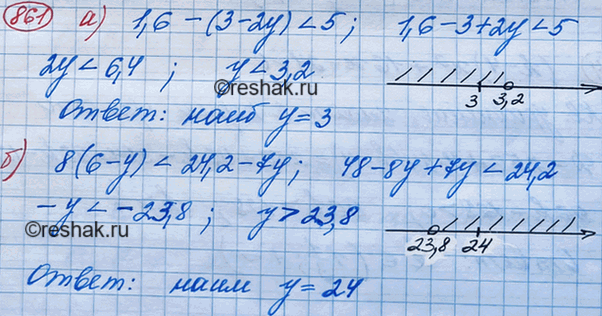 861 а) 1,6 - (3-2y) < 5; 1,6-3+2y < 5
2y < 6,4; y < 3,2
©reshak.ru
3 3,2
Ответ: наиб y = 3
б) 8(6-y) < 24,2-7y; 48-8y+7y < 24,2
-y < -23,8; y > 23,8
©reshak.ru
23,8 24
Ответ: наим y = 24